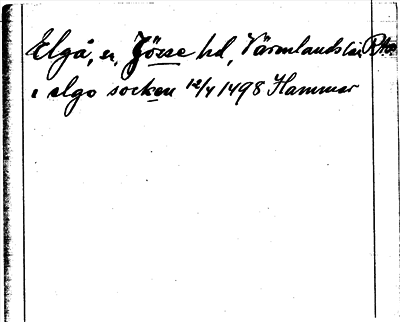 Elgå, sn, Jösse hd, Värmlands län
i elgo socken 12/4 1498 Hammar